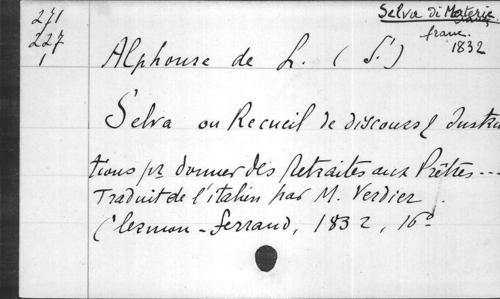 271
227
1
Selva di Materie
franc.
1832
Alphonse de L. (S.)
Selva ou Recueil de discours & Instruc
tions pr donner des Retraites aux Prêtres...
Traduit de l'italien par M. Verdier.
Clermon-Ferrand, 1832, 16°